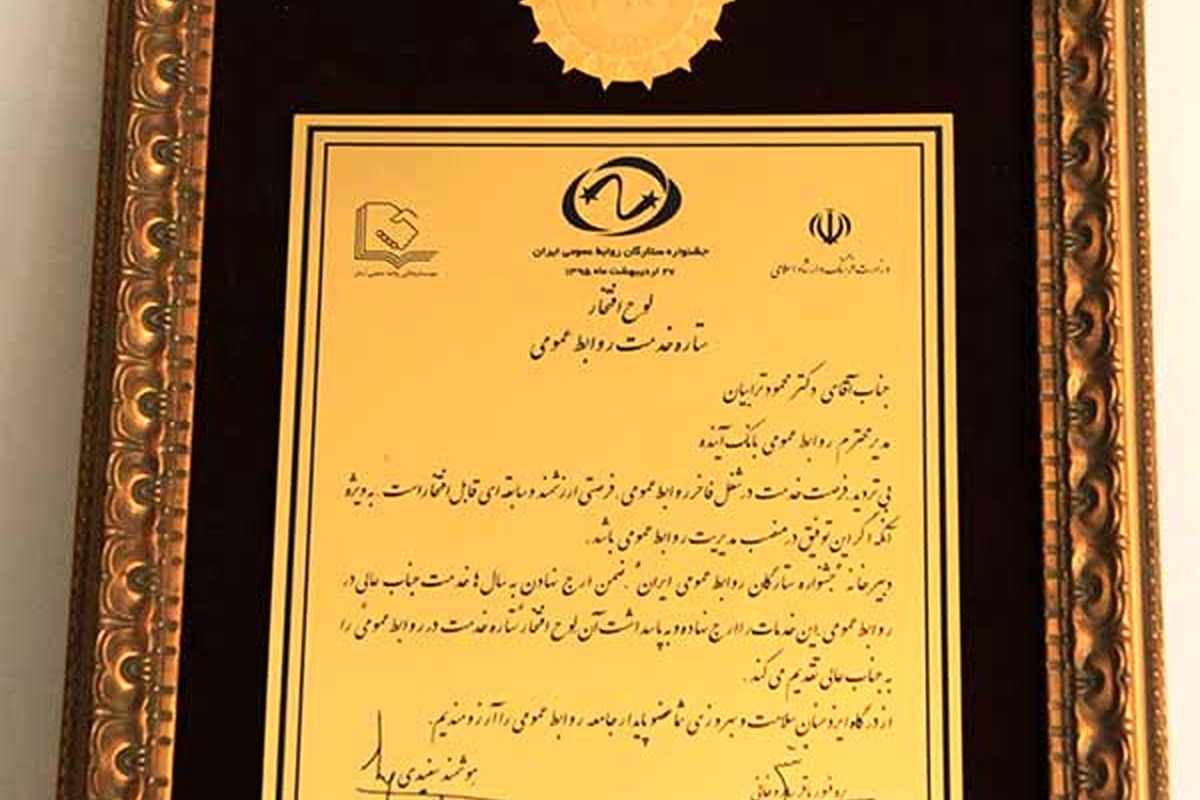 جشنواره ستارگان روابط عمومی ایران
۲۷ اردیبهشت ماه ۱۳۹۵
وزارت فرهنگ و ارشاد اسلامی
لوح افتخار
ستاره خدمت روابط عمومی
جناب آقای دکتر محمود ترابیان
مدیر محترم روابط عمومی بانک آینده
بی تردید، فرصت خدمت در شغل فاخر روابط عمومی، فرصتی ارزشمند و سابقه ای قابل افتخار است. به ویژه
آنکه اگر این توفیق در منصب مدیریت روابط عمومی باشد.
دبیرخانه "جشنواره ستارگان روابط عمومی ایران"، ضمن ارج نهادن به سال ها خدمت جناب عالی در
روابط عمومی، این خدمات را ارج نهاده و به پاسداشت آن لوح افتخار "ستاره خدمت در روابط عمومی" را
به جناب عالی تقدیم می کند.
از درگاه ایزد منان سلامت و بهروزی شما عضو پایدار جامعه روابط عمومی را آرزومندیم.
هوشمند سفیدی
پروفسور باقر ساروخانی